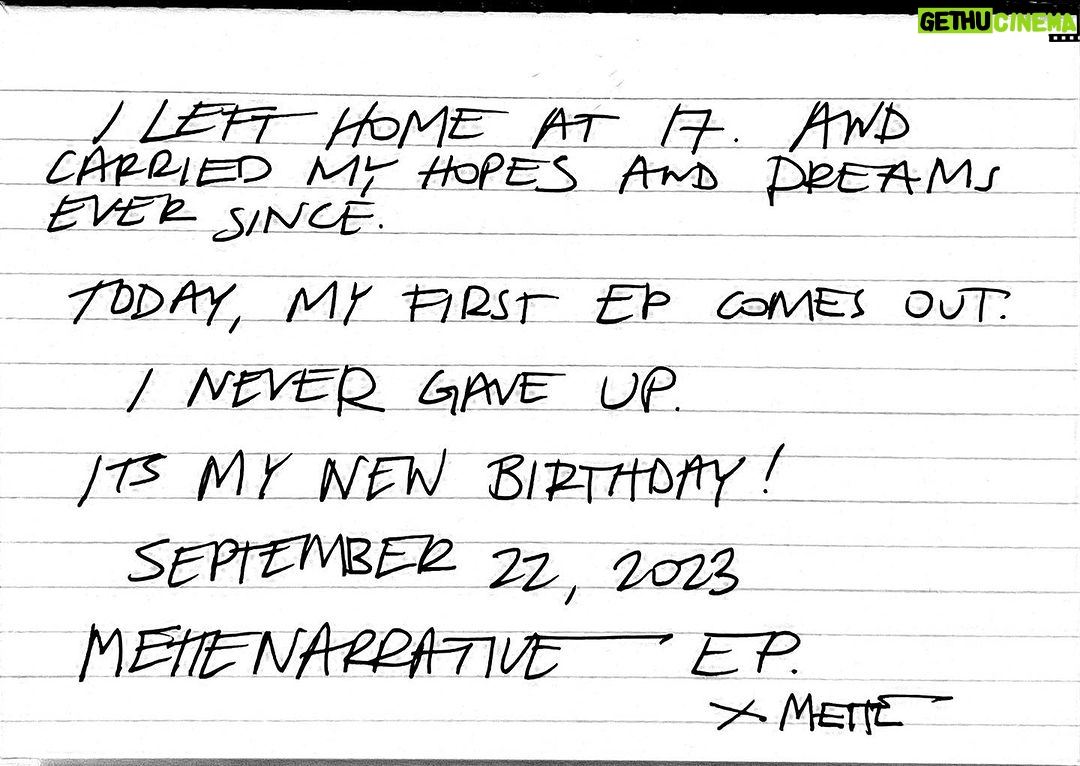 GETHUCINEMA
I LEFT HOME AT 17. AND
CARRIED MY HOPES AND DREAMS
EVER SINCE.
TODAY, MY FIRST EP COMES OUT.
I NEVER GAVE UP.
ITS MY NEW BIRTHDAY!
SEPTEMBER 22, 2023
METTENARRATIVE EP.
X METTE